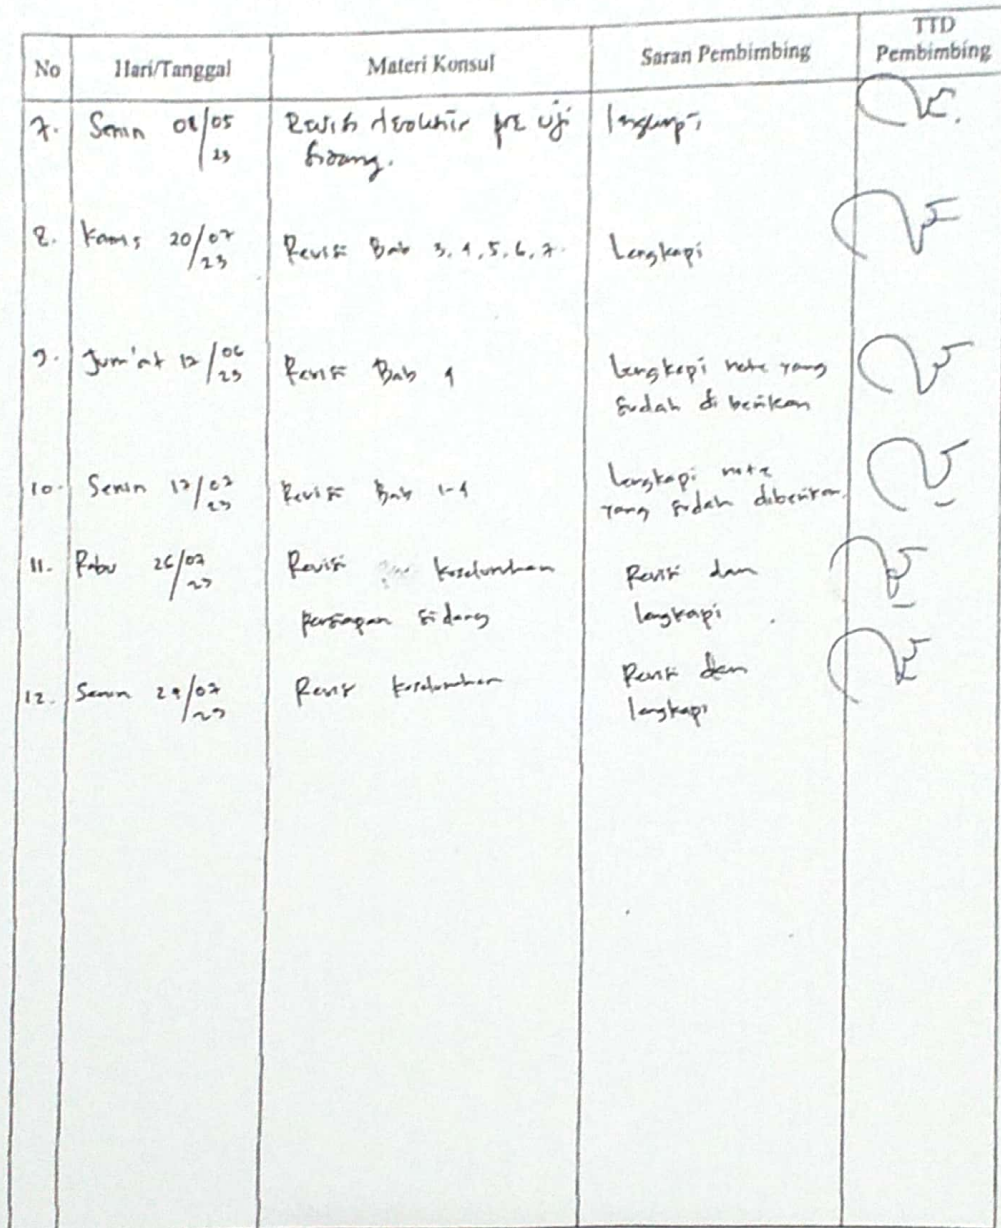 No Hari/Tanggal Materi Konsul Saran Pembimbing TTD Pembimbing
7. Senin 08/05/23 Revisi pre uji lengkapi
sidang.
8. Kamis 20/07/23 Revisi Bab 3, 4, 5, 6, 7. Lengkapi
9. Jum'at 12/06/23 Revisi Bab 4 lengkapi note yang
sudah di berikan
10. Senin 17/07/23 Revisi Bab 1-4 lengkapi note
yang sudah diberikan
11. Rabu 26/07/23 Revisi keseluruhan Revisi dan
persiapan sidang lengkapi
12. Senin 07/23 Revisi keseluruhan Revisi dan
lengkapi